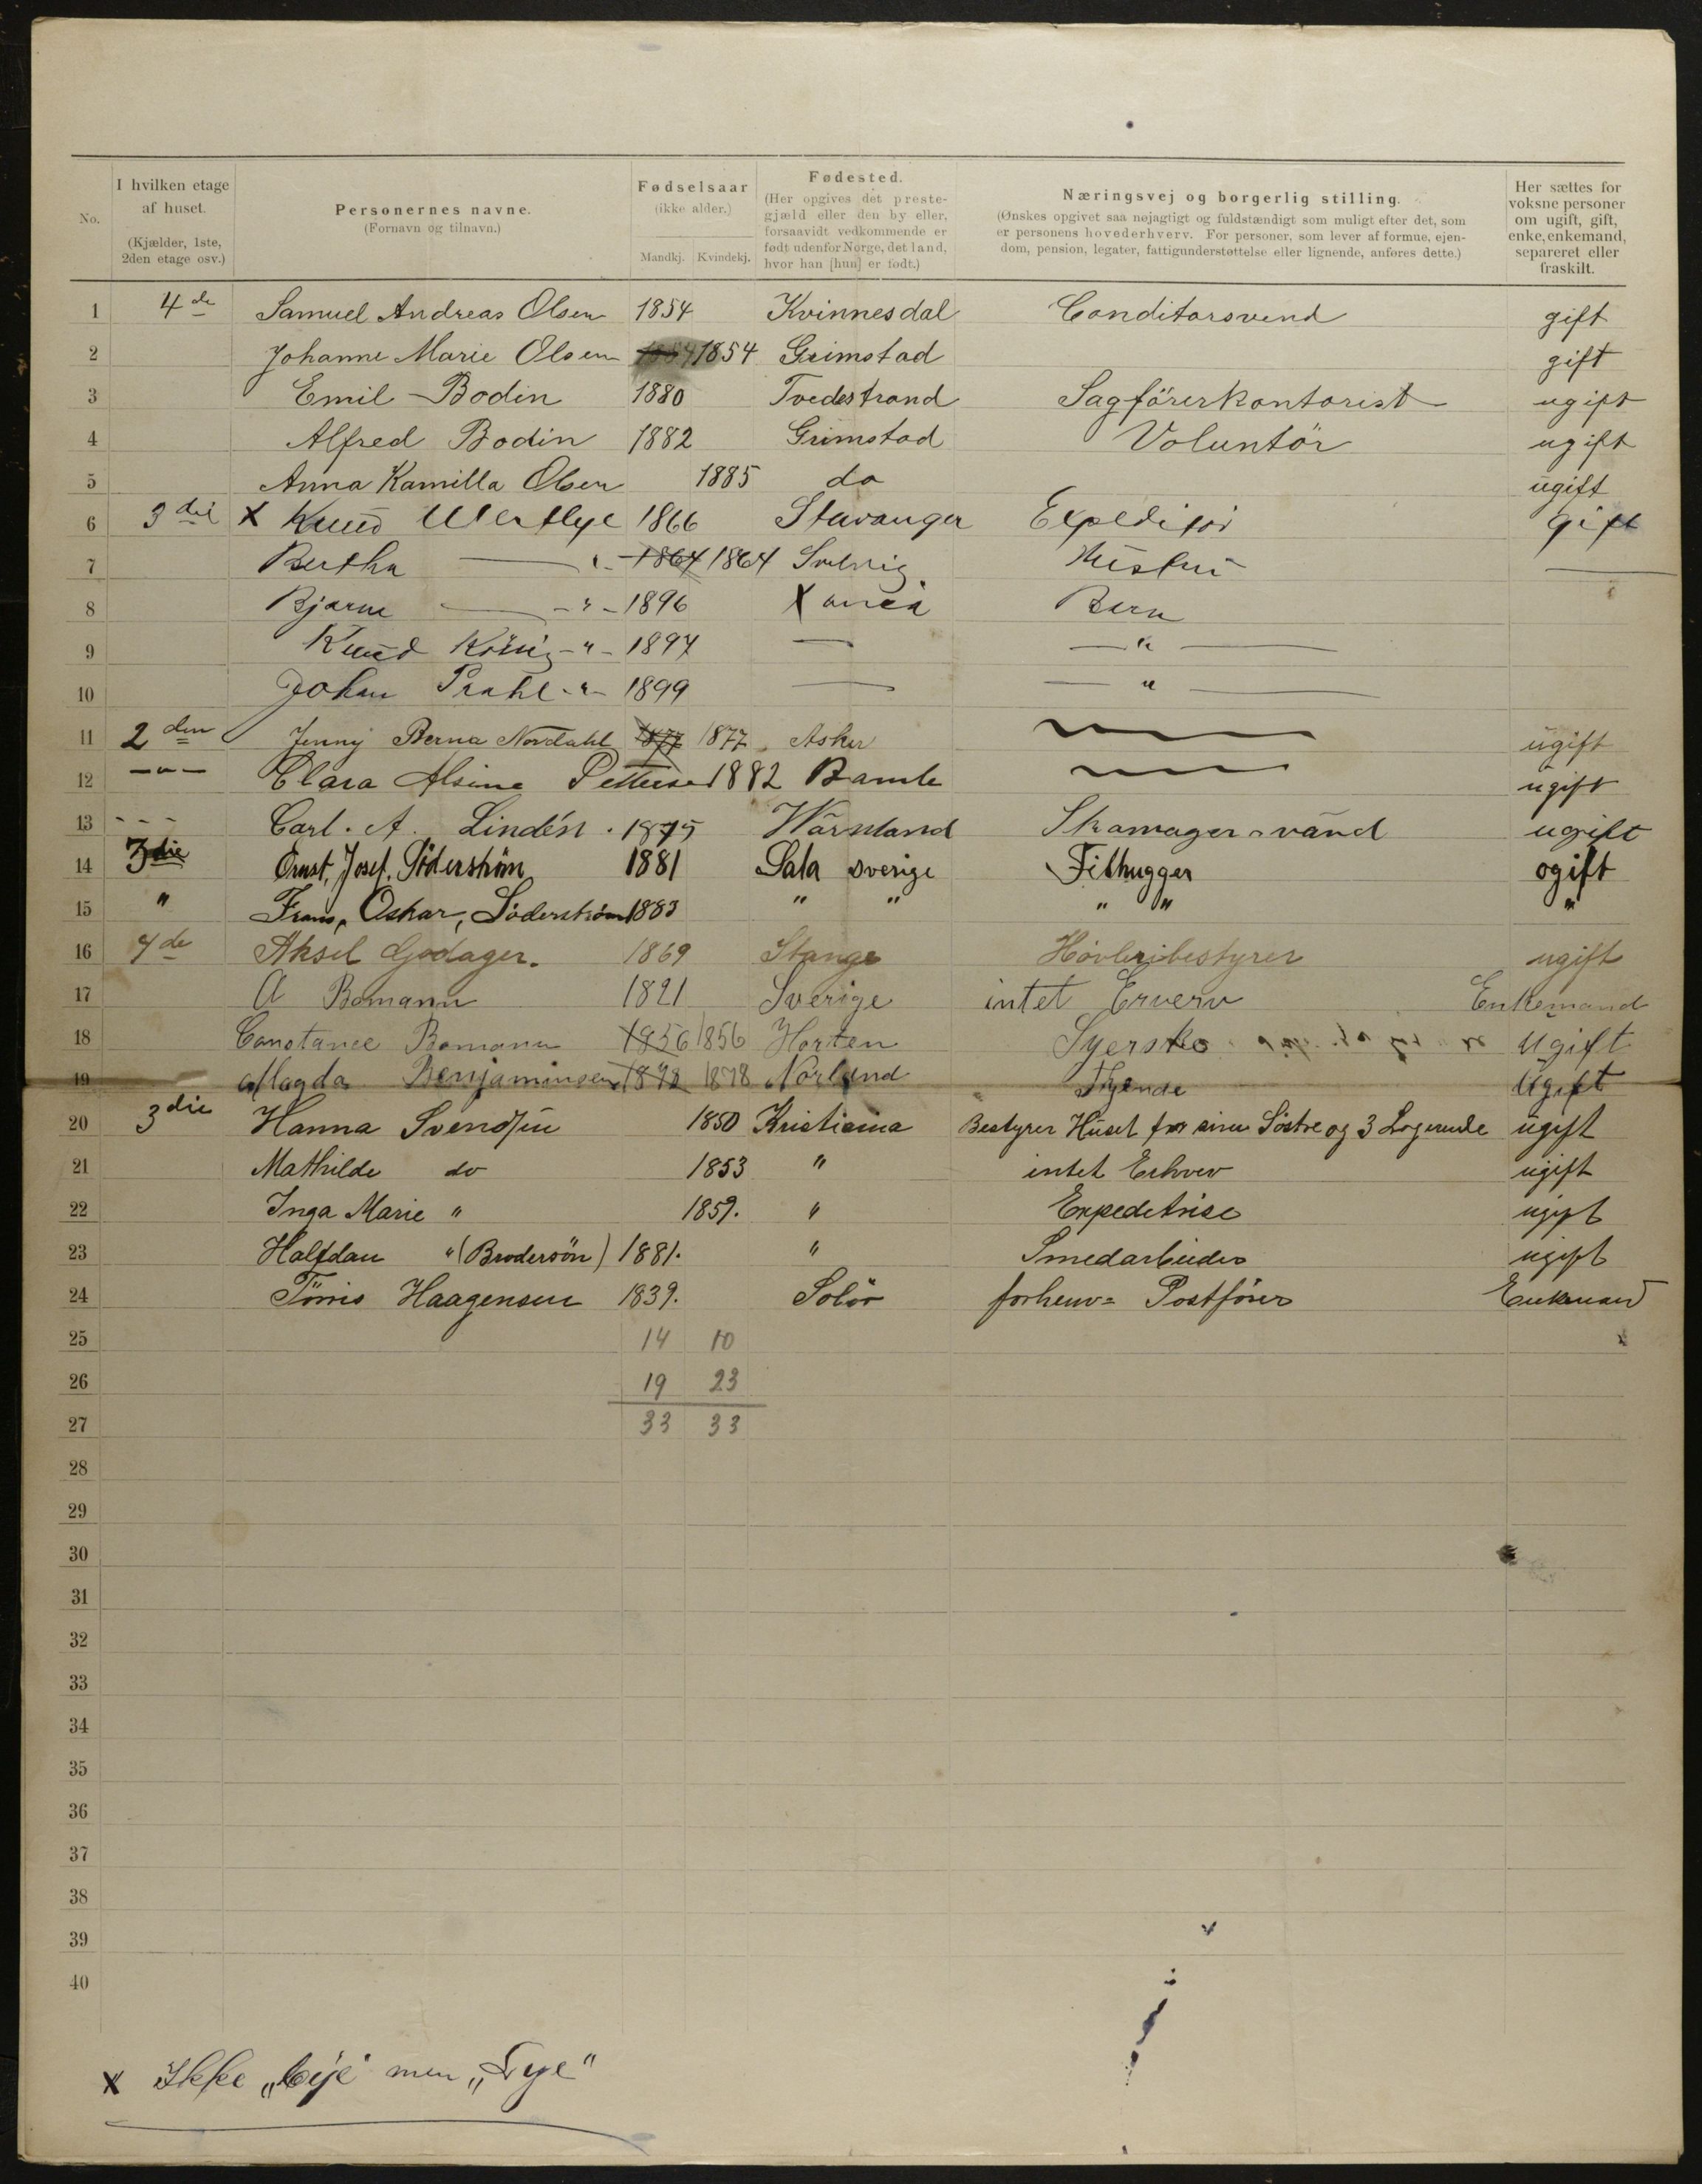 No.
I hvilken etage af huset. (Kjælder, 1ste, 2den etage osv.)
Personernes navne. (Fornavn og tilnavn.)
Fødselsaar (ikke alder.) Mandkj. Kvindekj.
Fødested. (Her opgives det prestegjæld eller den by eller, forsaavidt vedkommende er født udenfor Norge, det land, hvor han [hun] er født.)
Næringsvej og borgerlig stilling. (Ønskes opgivet saa nøjagtigt og fuldstændigt som muligt efter det, som er personens hovederhverv. For personer, som lever af formue, ejendom, pension, legater, fattigunderstøttelse eller lignende, anføres dette.)
Her sættes for voksne personer om ugift, gift, enke, enkemand, separeret eller fraskilt.
1 4de Samuel Andreas Olsen 1854 Kvinnesdal Conditorsvend gift
2 Johanne Marie Olsen 1854 1854 Grimstad gift
3 Emil Bodin 1880 Tvedestrand Sagförerkontorist ugift
4 Alfred Bodin 1882 Grimstad Voluntör ugift
5 Anna Kamilla Olsen 1885 do ugift
6 3die X Knud 1866 Stavanger Expeditör gift
7 Bertha — " — 1864 1864 Hustru
8 Bjarne — " — 1896 X ania Barn
9 Knud König — " — 1897 — — " —
10 Johan Prahl — " — 1899 — — " —
11 2den Jenny Berna Nordahl 1877 1877 Asker ugift
12 — " — Clara Alsine Pettersen 1882 Bamle ugift
13 - - - Carl. A. Lindén. 1875 Wärmland Skomager svänd ugift
14 3die Ernst, Josef, Söderström 1881 Sala Sverige Filhugger ogift
15 " Frans, Oskar, Söderström 1883 " " " " "
16 4de Aksel Godager. 1869 Stange Høvleribestyrer ugift
17 A Bomann 1821 Sverige intet Erverv Enkemand
18 Constance Bomann 1856 1856 Horten Syerske Ugift
19 Magda Benjaminsen 1878 1878 Norland Tjende Ugift
20 3die Hanna Svendsen 1850 Kristiania Bestyrer Huset for sine Söstre og 3 Logerende ugift
21 Mathilde do 1853 " intet Erhverv ugift
22 Inga Marie " 1859. " Expeditrise ugift
23 Halfdan " (Brodersön) 1881. " Smedarbeider ugift
24 Tönis Haagensen 1839. Solör forhenv= Postförer Enkemand
25 14 10
26 19 23
27 33 33
28
29
30
31
32
33
34
35
36
37
38
39
40
X Ikke „Lije" men „Tye"